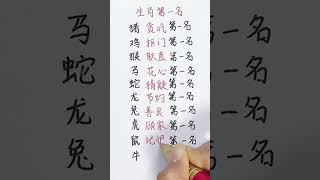 生肖第一名
猪贪吃第一名
鸡抠门第一名
猴耿直第一名
马花心第一名
蛇猜疑第一名
龙节约第一名
兔善良第一名
虎顾家第一名
鼠记忆第一名
牛
马
蛇
龙
兔
名
名
名
名